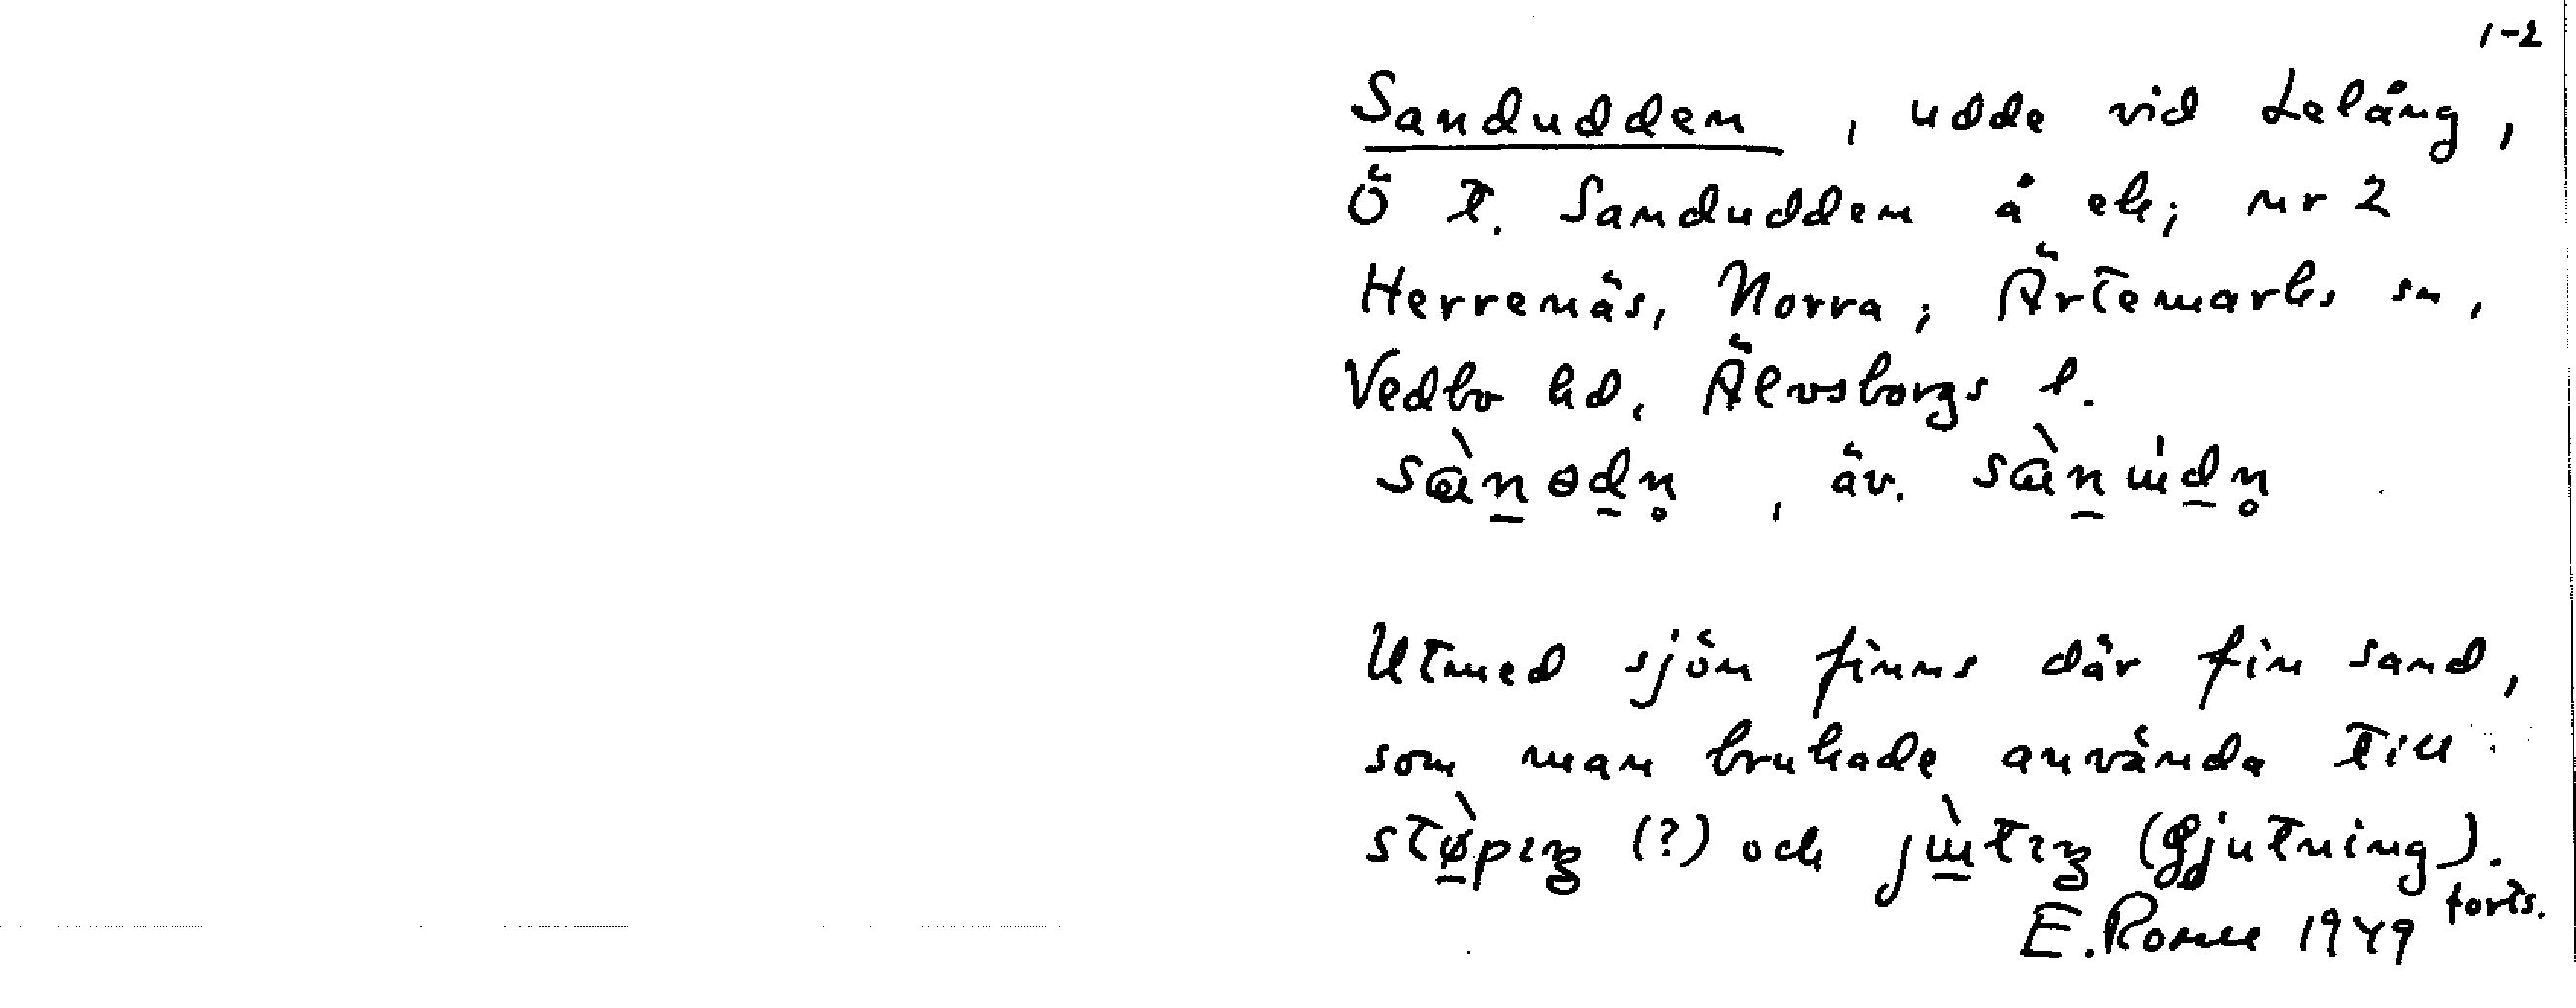 1-2
Sandudden, udde vid Lelång,
Ö t. Sandudden å ek; nr 2
Herrenäs, Norra; Ärtemarks sn,
Vedbo hd, Älvsborgs l.
, äv.
Utmed sjön finns där fin sand,
som man brukade använda till
(?) och (Gjutning).
forts.
E. Rosell 1949